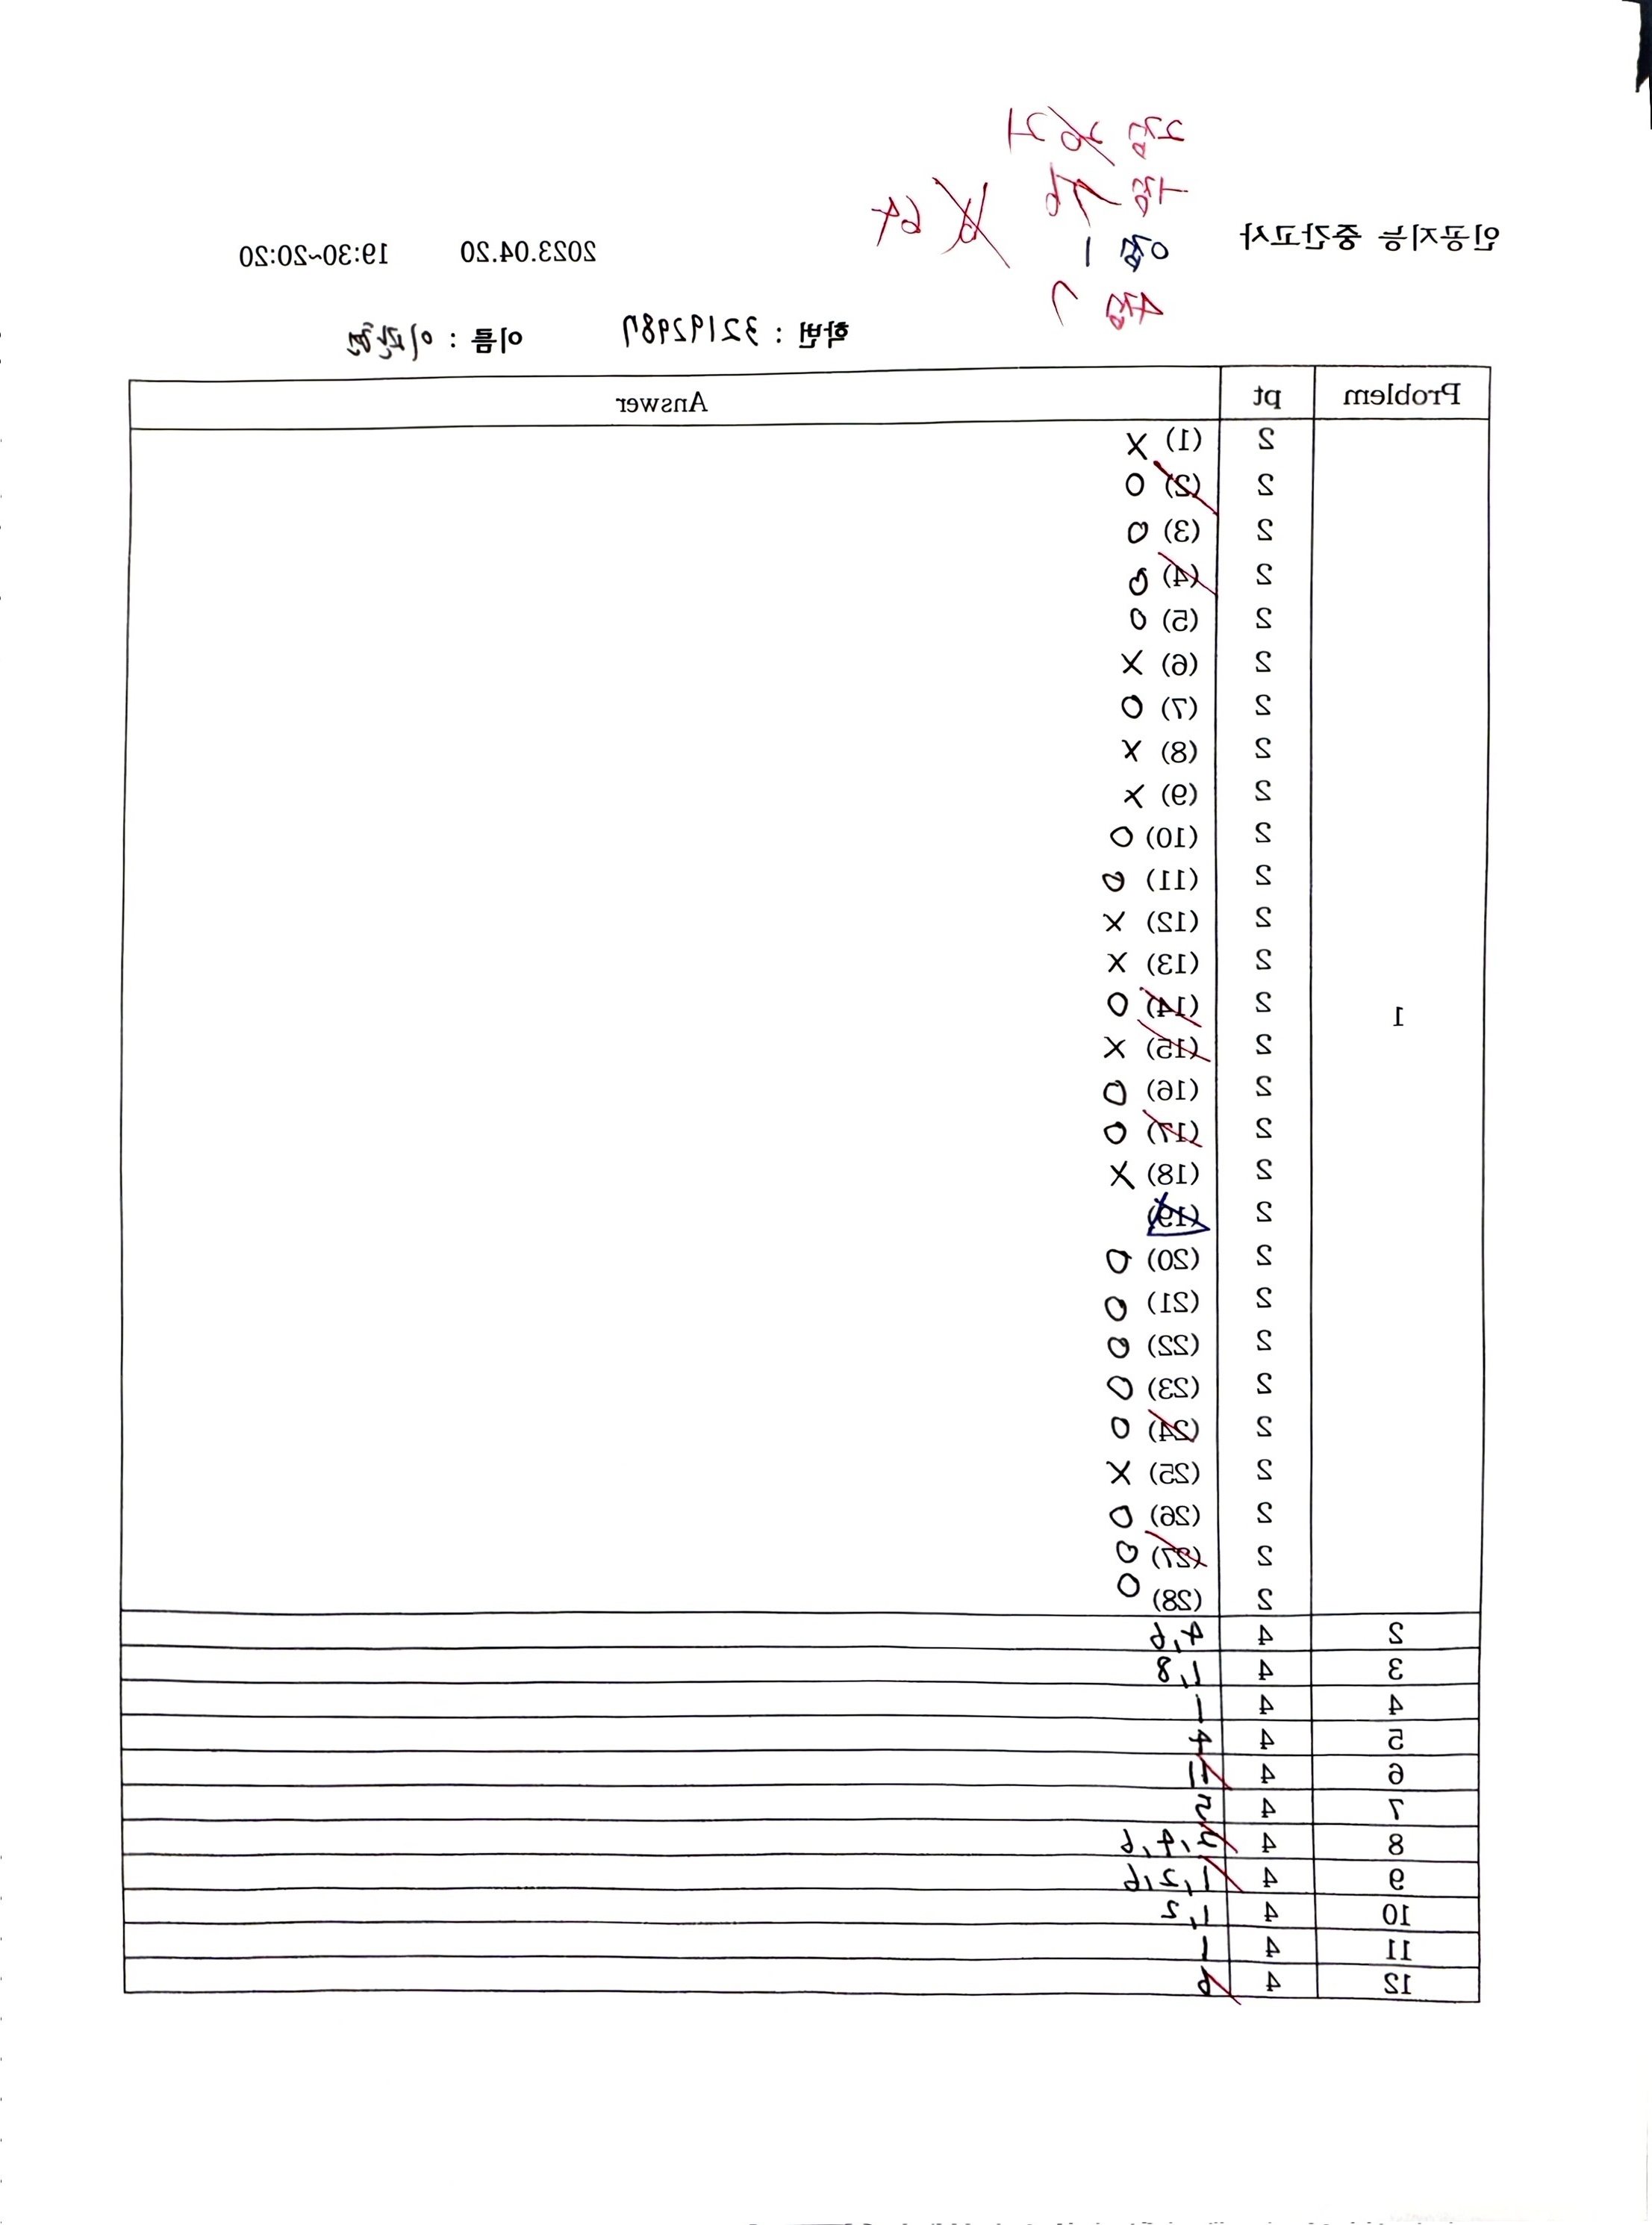 2점 21
1점
0점 1
4점 7
64
인공지능 중간고사 2023.04.20 19:30~20:20
학번 : 32192987 이름 :
Problem pt Answer
1
2 (1) X
2 (2) O
2 (3) O
2 (4) O
2 (5) O
2 (6) X
2 (7) O
2 (8) X
2 (9) X
2 (10) O
2 (11) O
2 (12) X
2 (13) X
2 (14) O
2 (15) X
2 (16) O
2 (17) O
2 (18) X
2 (19)
2 (20) O
2 (21) O
2 (22) O
2 (23) O
2 (24) O
2 (25) X
2 (26) O
2 (27) O
2 (28) O
2 4 4,6
3 4 1,8
4 4 1
5 4 4
6 4
7 4 2
8 4 2,4,6
9 4 1,2,6
10 4 1,2
11 4 1
12 4 6